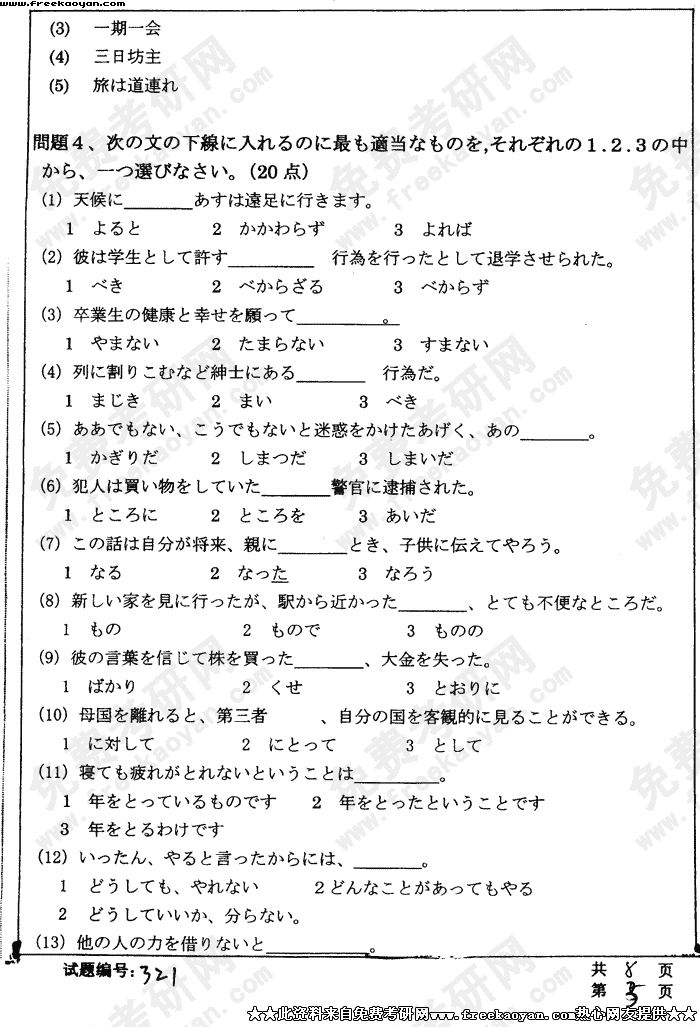 www.freekaoyan.com
(3) 一期一会
(4) 三日坊主
(5) 旅は道連れ
問題４、次の文の下線に入れるのに最も適当なものを,それぞれの１.２.３の中
から、一つ選びなさい。(20 点)
(1) 天候に________あすは遠足に行きます。
1 よると 2 かかわらず 3 よれば
(2) 彼は学生として許す__________ 行為を行ったとして退学させられた。
1 べき 2 べからざる 3 べからず
(3) 卒業生の健康と幸せを願って__________。
1 やまない 2 たまらない 3 すまない
(4) 列に割りこむなど紳士にある________ 行為だ。
1 まじき 2 まい 3 べき
(5) ああでもない、こうでもないと迷惑をかけたあげく、あの________。
1 かぎりだ 2 しまつだ 3 しまいだ
(6) 犯人は買い物をしていた________警官に逮捕された。
1 ところに 2 ところを 3 あいだ
(7) この話は自分が将来、親に________とき、子供に伝えてやろう。
1 なる 2 なった 3 なろう
(8) 新しい家を見に行ったが、駅から近かった________、とても不便なところだ。
1 もの 2 もので 3 ものの
(9) 彼の言葉を信じて株を買った________、大金を失った。
1 ばかり 2 くせ 3 とおりに
(10) 母国を離れると、第三者 、自分の国を客観的に見ることができる。
1 に対して 2 にとって 3 として
(11) 寝ても疲れがとれないということは__________。
1 年をとっているものです 2 年をとったということです
3 年をとるわけです
(12) いったん、やると言ったからには、________。
1 どうしても、やれない 2どんなことがあってもやる
2 どうしていいか、分らない。
(13) 他の人の力を借りないと____________。
试题编号: 321
共 8 页
第 5 页
★★此资料来自免费考研网www.freekaoyan.com热心网友提供★★
免费考研网
www.freekaoyan.com